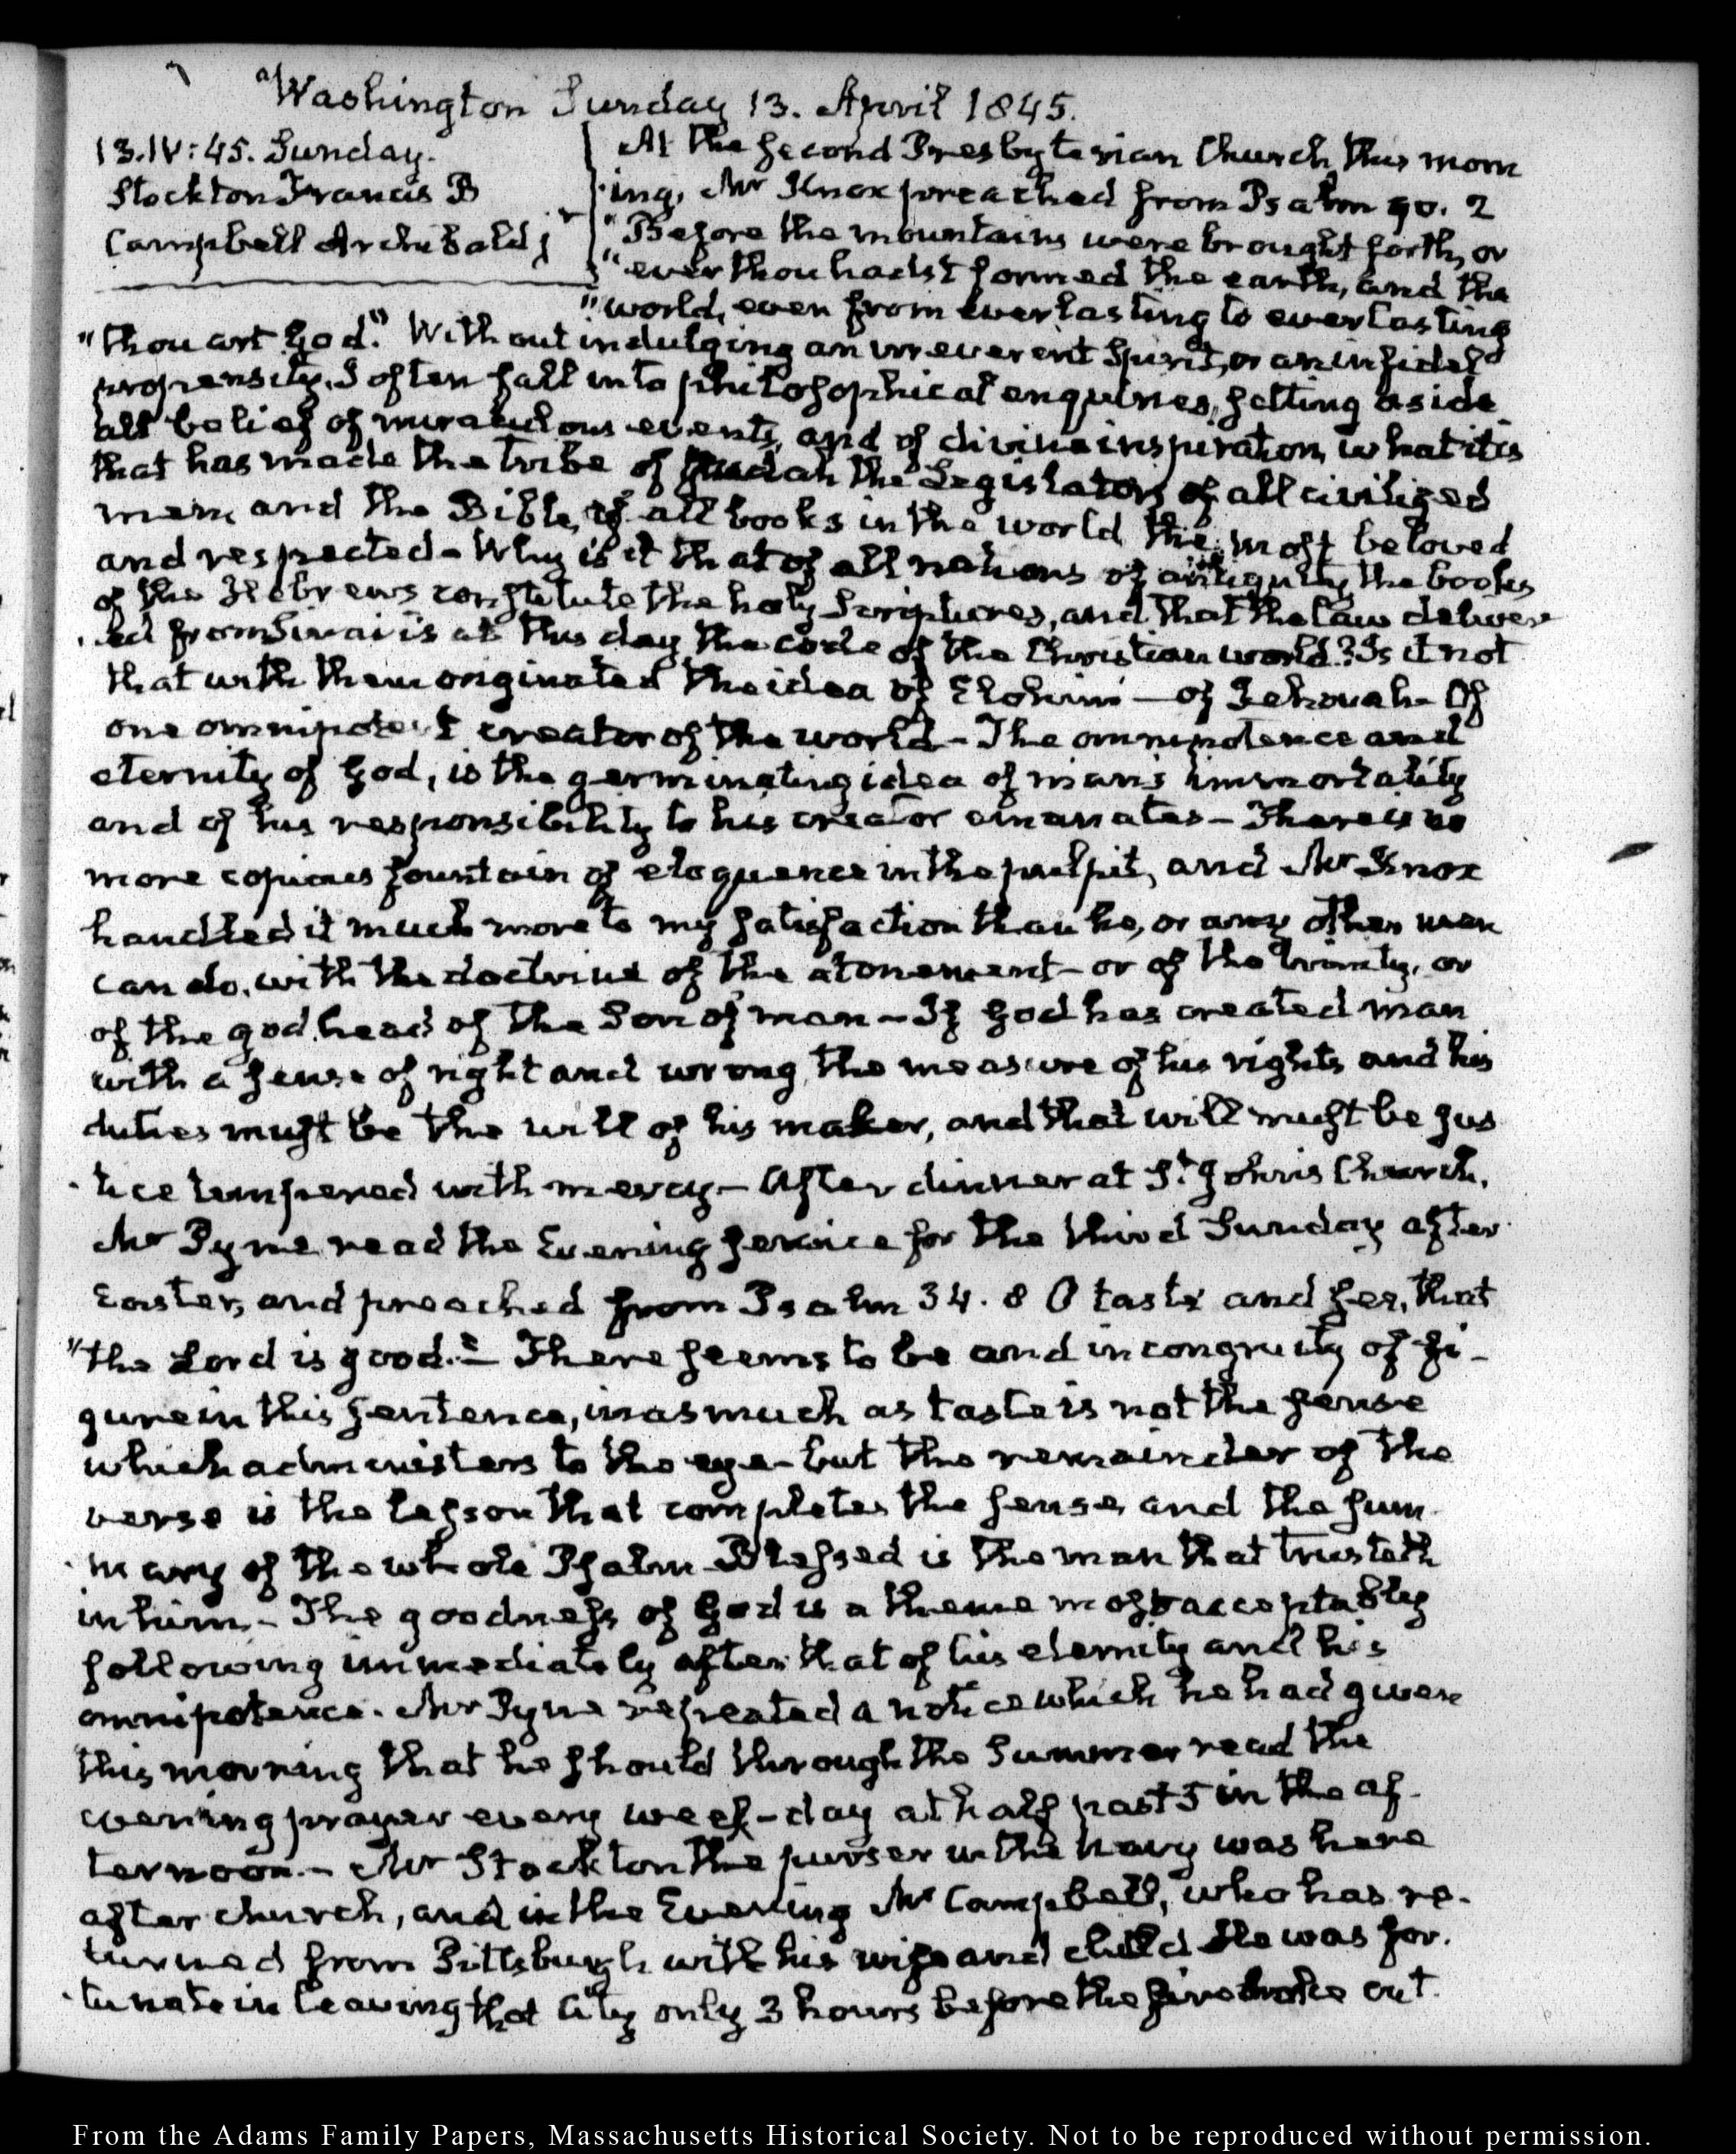 Washington Sunday 13. April 1845.
13. IV: 45. Sunday.
Stockton Francis B
Campbell Archibald jr
At the second Presbyterian Church this morn
ing, Mr Knox preached from Psalm 90. 2
"Before the mountains were brought forth, or
"ever thou hadst formed the earth, and the
"world, even from everlasting to everlasting
"thou art God." Without indulging an irreverent Spirit, or an infidel
propensity, I often fall into philosophical enquiries, setting aside
all belief of miraculous events, and of divine inspiration, what it is
that has made the tribe of Judah the Legislators of all civilized
men, and the Bible, of all books in the world the most beloved
and respected - Why is it that of all nations of antiquity, the books
of the Hebrews constitute the holy Scriptures, and that the law deliver
ed from Sinai is at this day the code of the Christian world? Is it not
that with them originated the idea of Elohim — of Jehovah - Of
one omnipotent creator of the world - The omnipotence and
eternity of God, is the germinating idea of man's immortality
and of his responsibility to his creator emanates - There is no
more copious fountain of eloquence in the pulpit, and Mr Knox
handled it much more to my satisfaction than he, or any other man
can do, with the doctrine of the atonement - or of the trinity, or
of the godhead of the Son of man - If God has created man
with a sense of right and wrong, the measure of his rights and his
duties must be the will of his maker, and that will must be jus
tice tempered with mercy - After dinner at St. John's Church,
Mr Pyne read the Evening service for the third Sunday after
Easter, and preached from Psalm 34. 8 O taste and see, that
"the Lord is good." - There seems to be and incongruity of fi-
gure in this sentence, inasmuch as taste is not the sense
which administers to the eye - but the remainder of the
verse is the lesson that completes the sense, and the sum
mary of the whole Psalm - Blessed is the man that trusteth
in him. - The goodness of God is a theme most acceptably
following immediately after that of his eternity and his
omnipotence. Mr Pyne repeated a notice which he had given
this morning that he should through the Summer read the
evening prayer every week-day at half past 5 in the af-
ternoon. - Mr Stockton the purser in the navy was here
after church, and in the Evening Mr Campbell, who has re-
turned from Pittsburgh with his wife and child He was for-
tunate in leaving that City only 3 hours before the fire broke out.
From the Adams Family Papers, Massachusetts Historical Society. Not to be reproduced without permission.